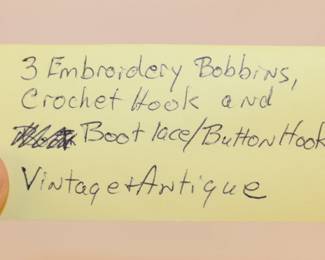 3 Embroidery Bobbins,
Crochet Hook and
Boot lace/Button Hook
Vintage + Antique